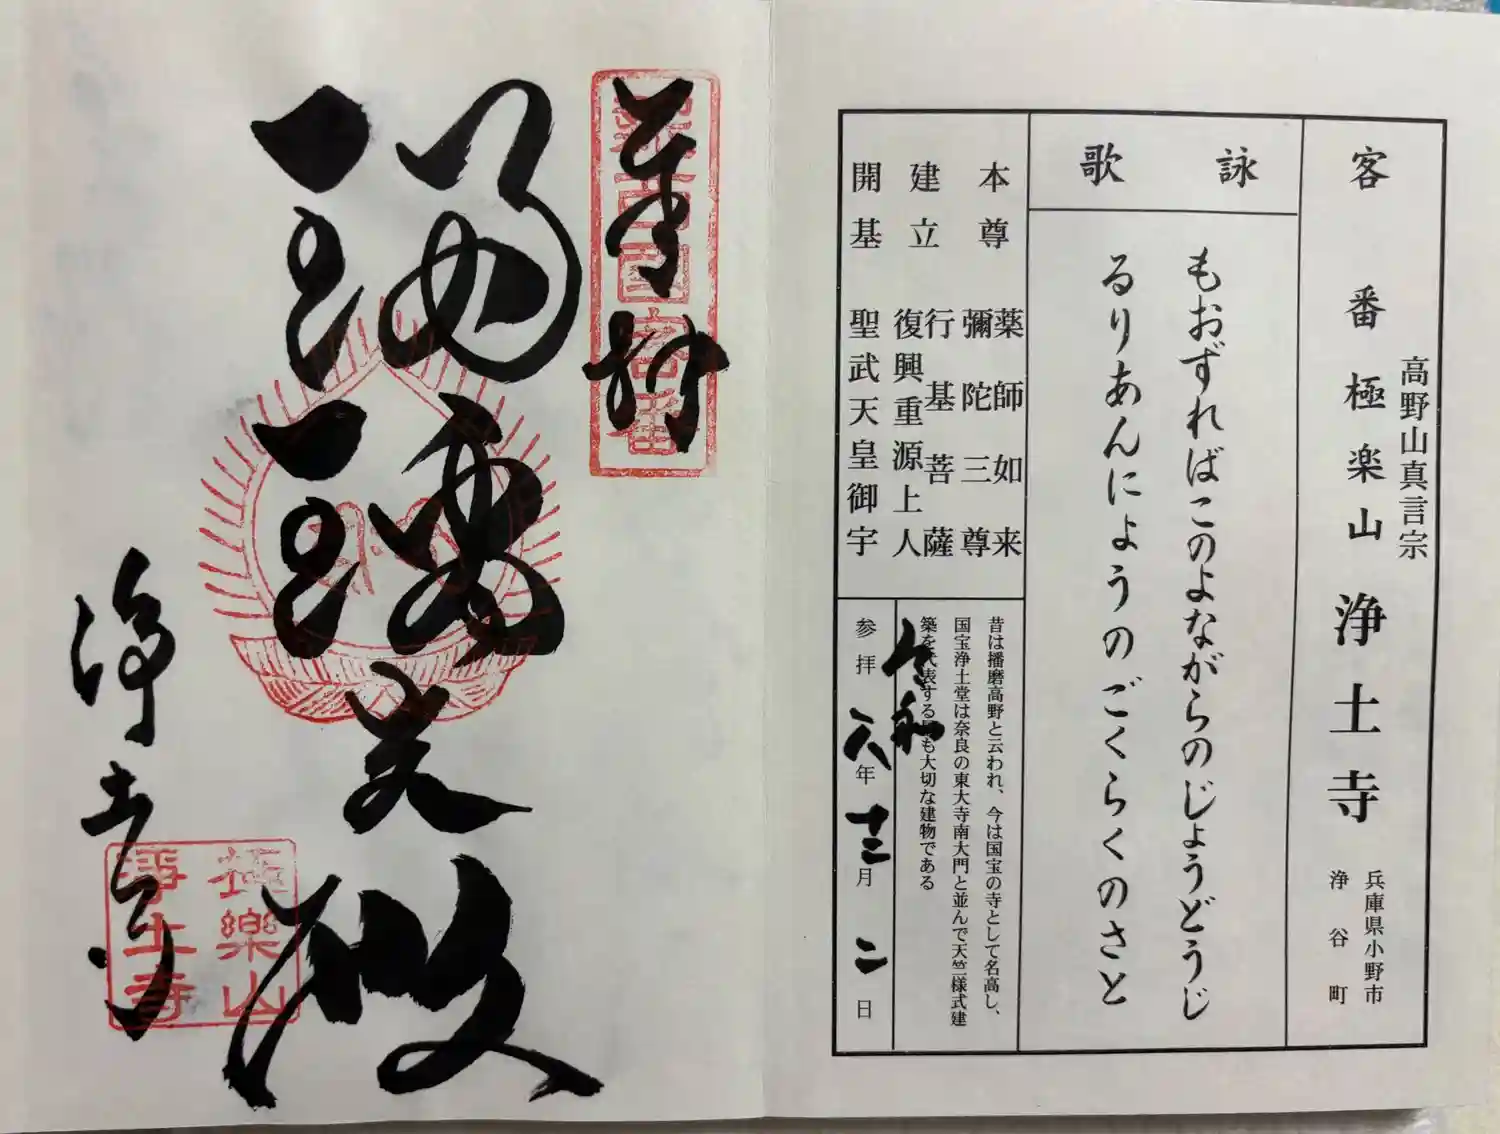 客番 極楽山 浄土寺
高野山真言宗
兵庫県小野市
浄谷町
詠歌
もおずればこのよながらのじょうどうじ
るりあんにょうのごくらくのさと
本尊 薬師如来
彌陀三尊
建立 行基菩薩
復興重源上人
開基 聖武天皇御宇
昔は播磨高野と云われ、今は国宝の寺として名高し、
国宝浄土堂は奈良の東大寺南大門と並んで天竺様式建
築を代表する最も大切な建物である
令和
参拝 六年 十二月 二日
奉拝
新西国客番
瑠璃光殿
浄土寺
極樂山
浄土寺